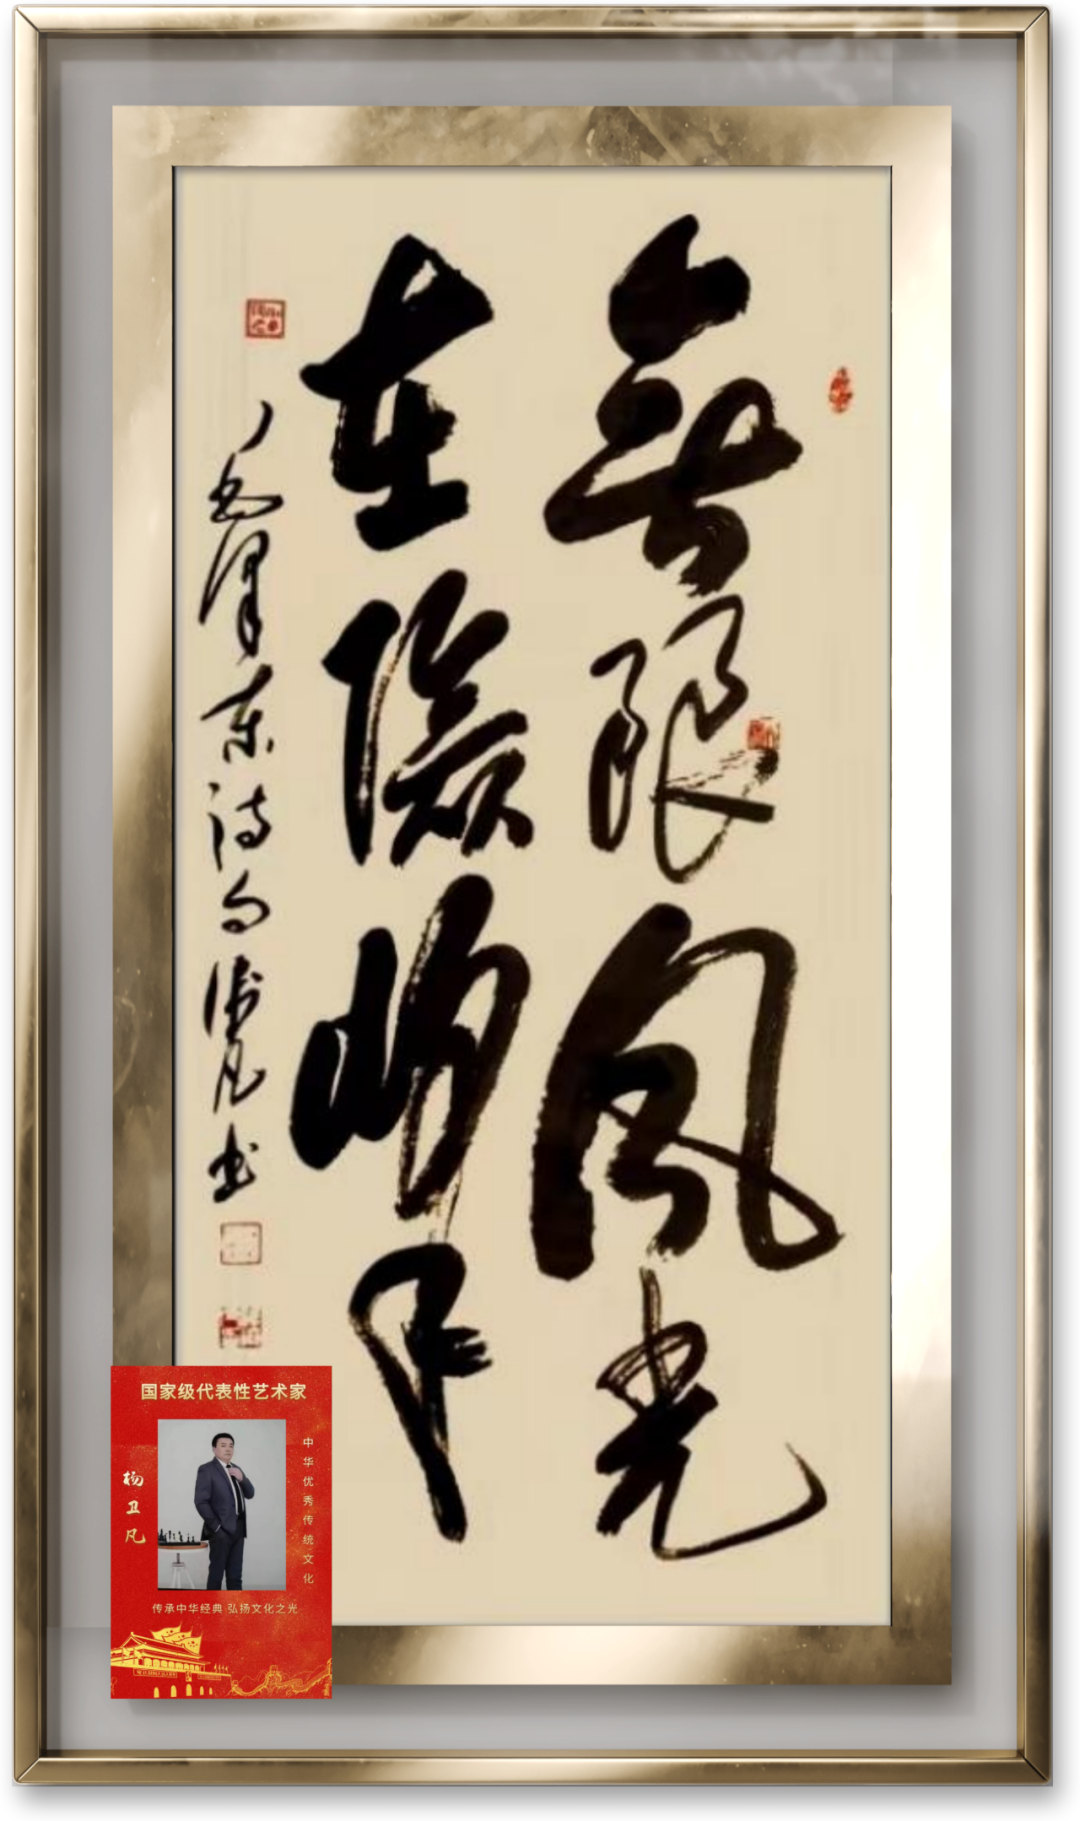 無限風光
在險峰
毛澤東詩句衛凡书
国家级代表性艺术家
中华优秀传统文化
杨卫凡
传承中华经典 弘扬文化之光